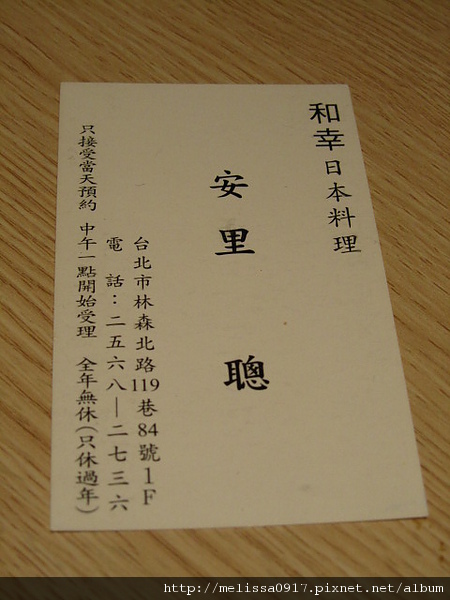 和幸日本料理
安里 聰
台北市林森北路119巷84號1F
電話：二五六八—二七三六
只接受當天預約 中午一點開始受理 全年無休(只休過年)
http://melissa0917.pixnet.net/album